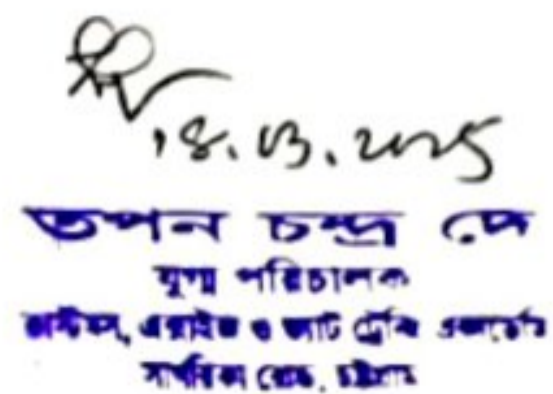 ১৪.০৩.২০২৫
তপন চন্দ্র দে
যুগ্ম পরিচালক
কাস্টমস, এক্সাইজ ও ভ্যাট ট্রেনিং একাডেমি
সাগরিকা রোড, চট্টগ্রাম